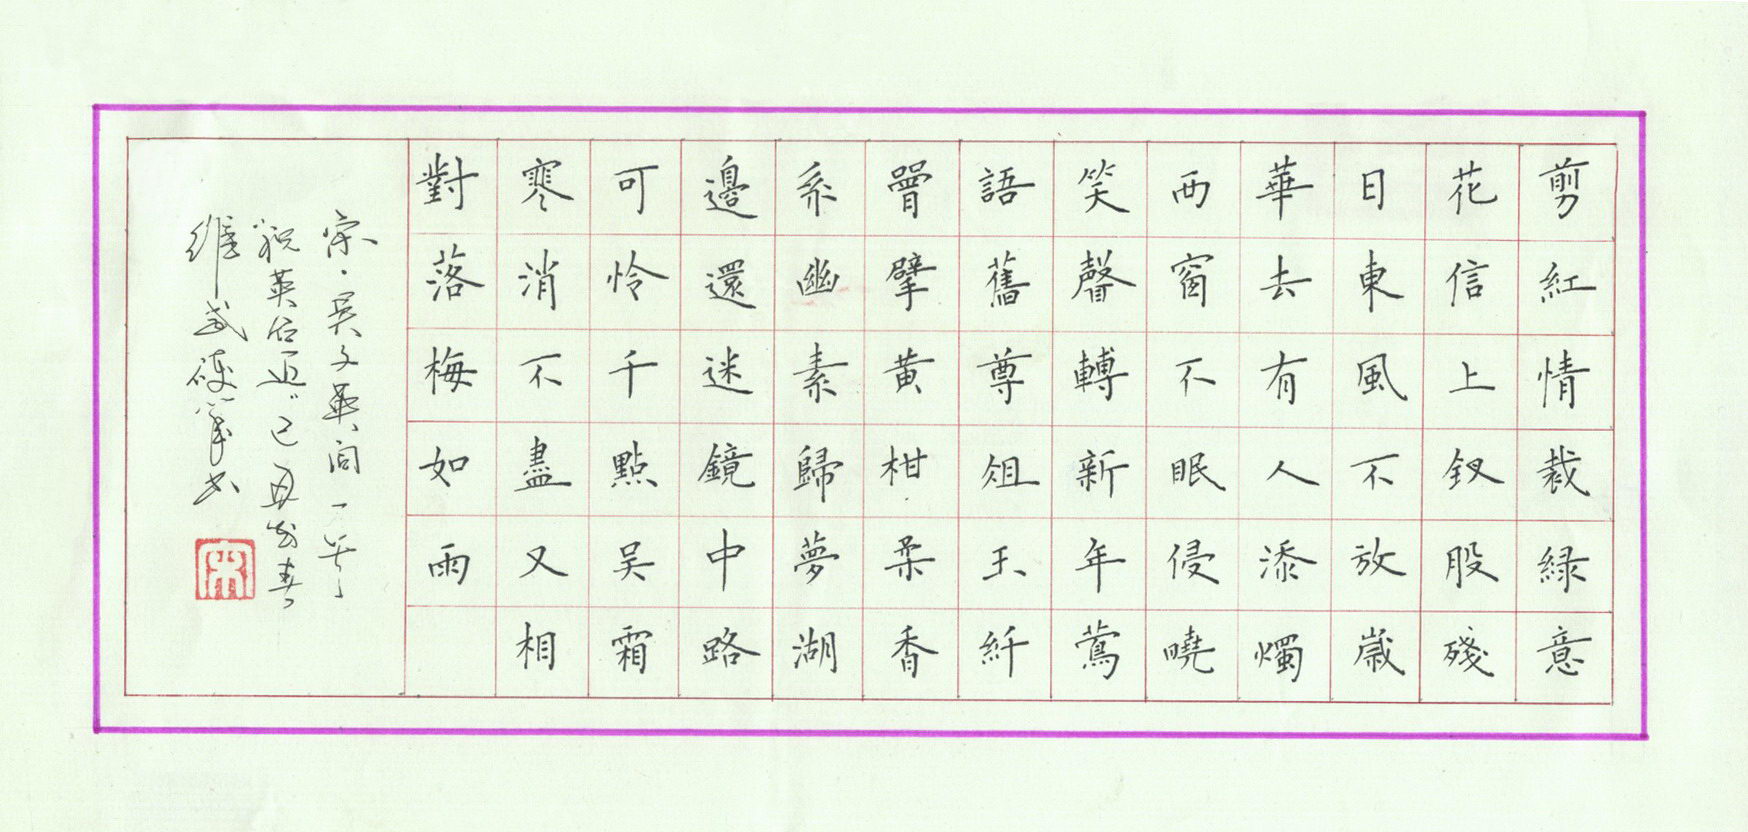 剪紅情裁緑意
花信上釵股殘
日東風不放歲
華去有人添燭
西窗不眠侵曉
笑聲轉新年鶯
語舊尊俎玉纤
曾擘黄柑柔香
系幽素歸夢湖
邊還迷鏡中路
可怜千點吴霜
寒消不盡又相
對落梅如雨
宋·吳文英词一首
祝英台近 己丑初春
維武硬筆书
宋